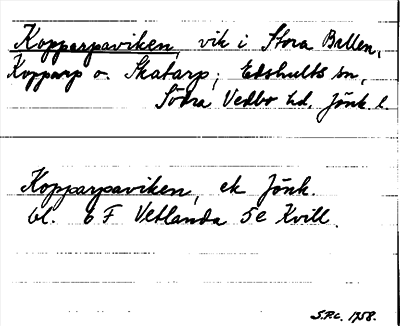 Kopparpaviken, vik i Stora Bellen,
Kopparp o. Skatarp; Edshults sn,
Södra Vedbo hd. Jönk. l.
Kopparpaviken, ek Jönk.
bl. 6 F Vetlanda 5e Kvill.
S.P.C. 1758.